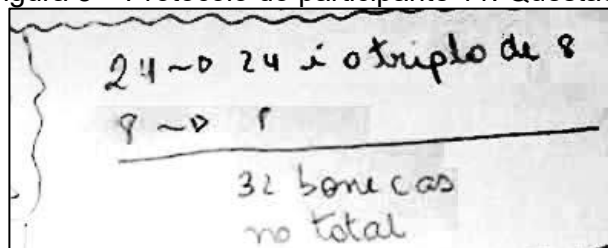 24 → 24 é o triplo de 8
8 →
32 bonecas
no total